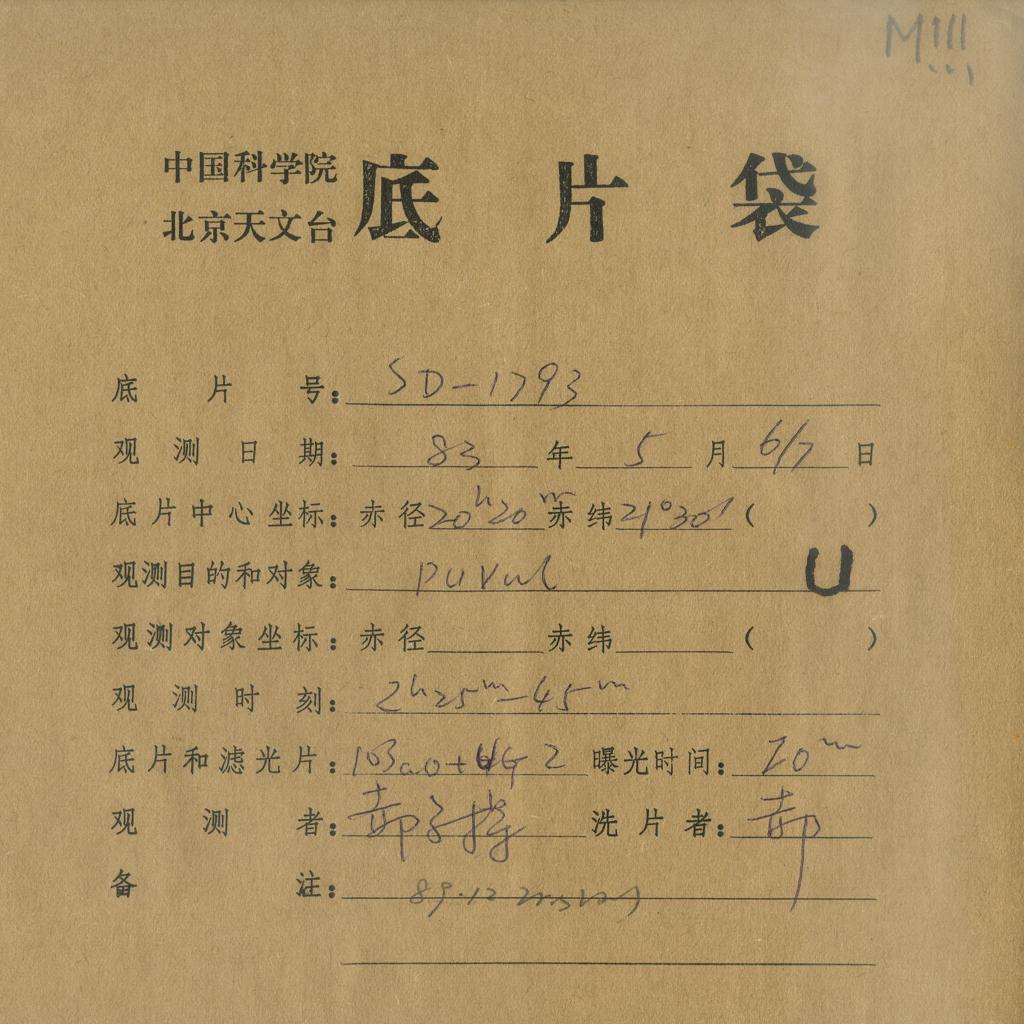 M!!!
中国科学院
北京天文台
底片袋
底片号：SD-1793
观测日期：83年5月6/7日
底片中心坐标：赤径20h20m赤纬21°30′（ ）
观测目的和对象：PUVul U
观测对象坐标：赤径 赤纬 （ ）
观测时刻：2h25m-45m
底片和滤光片：103aO+UG2 曝光时间：20m
观测者：郝 洗片者：郝
备注：89.12